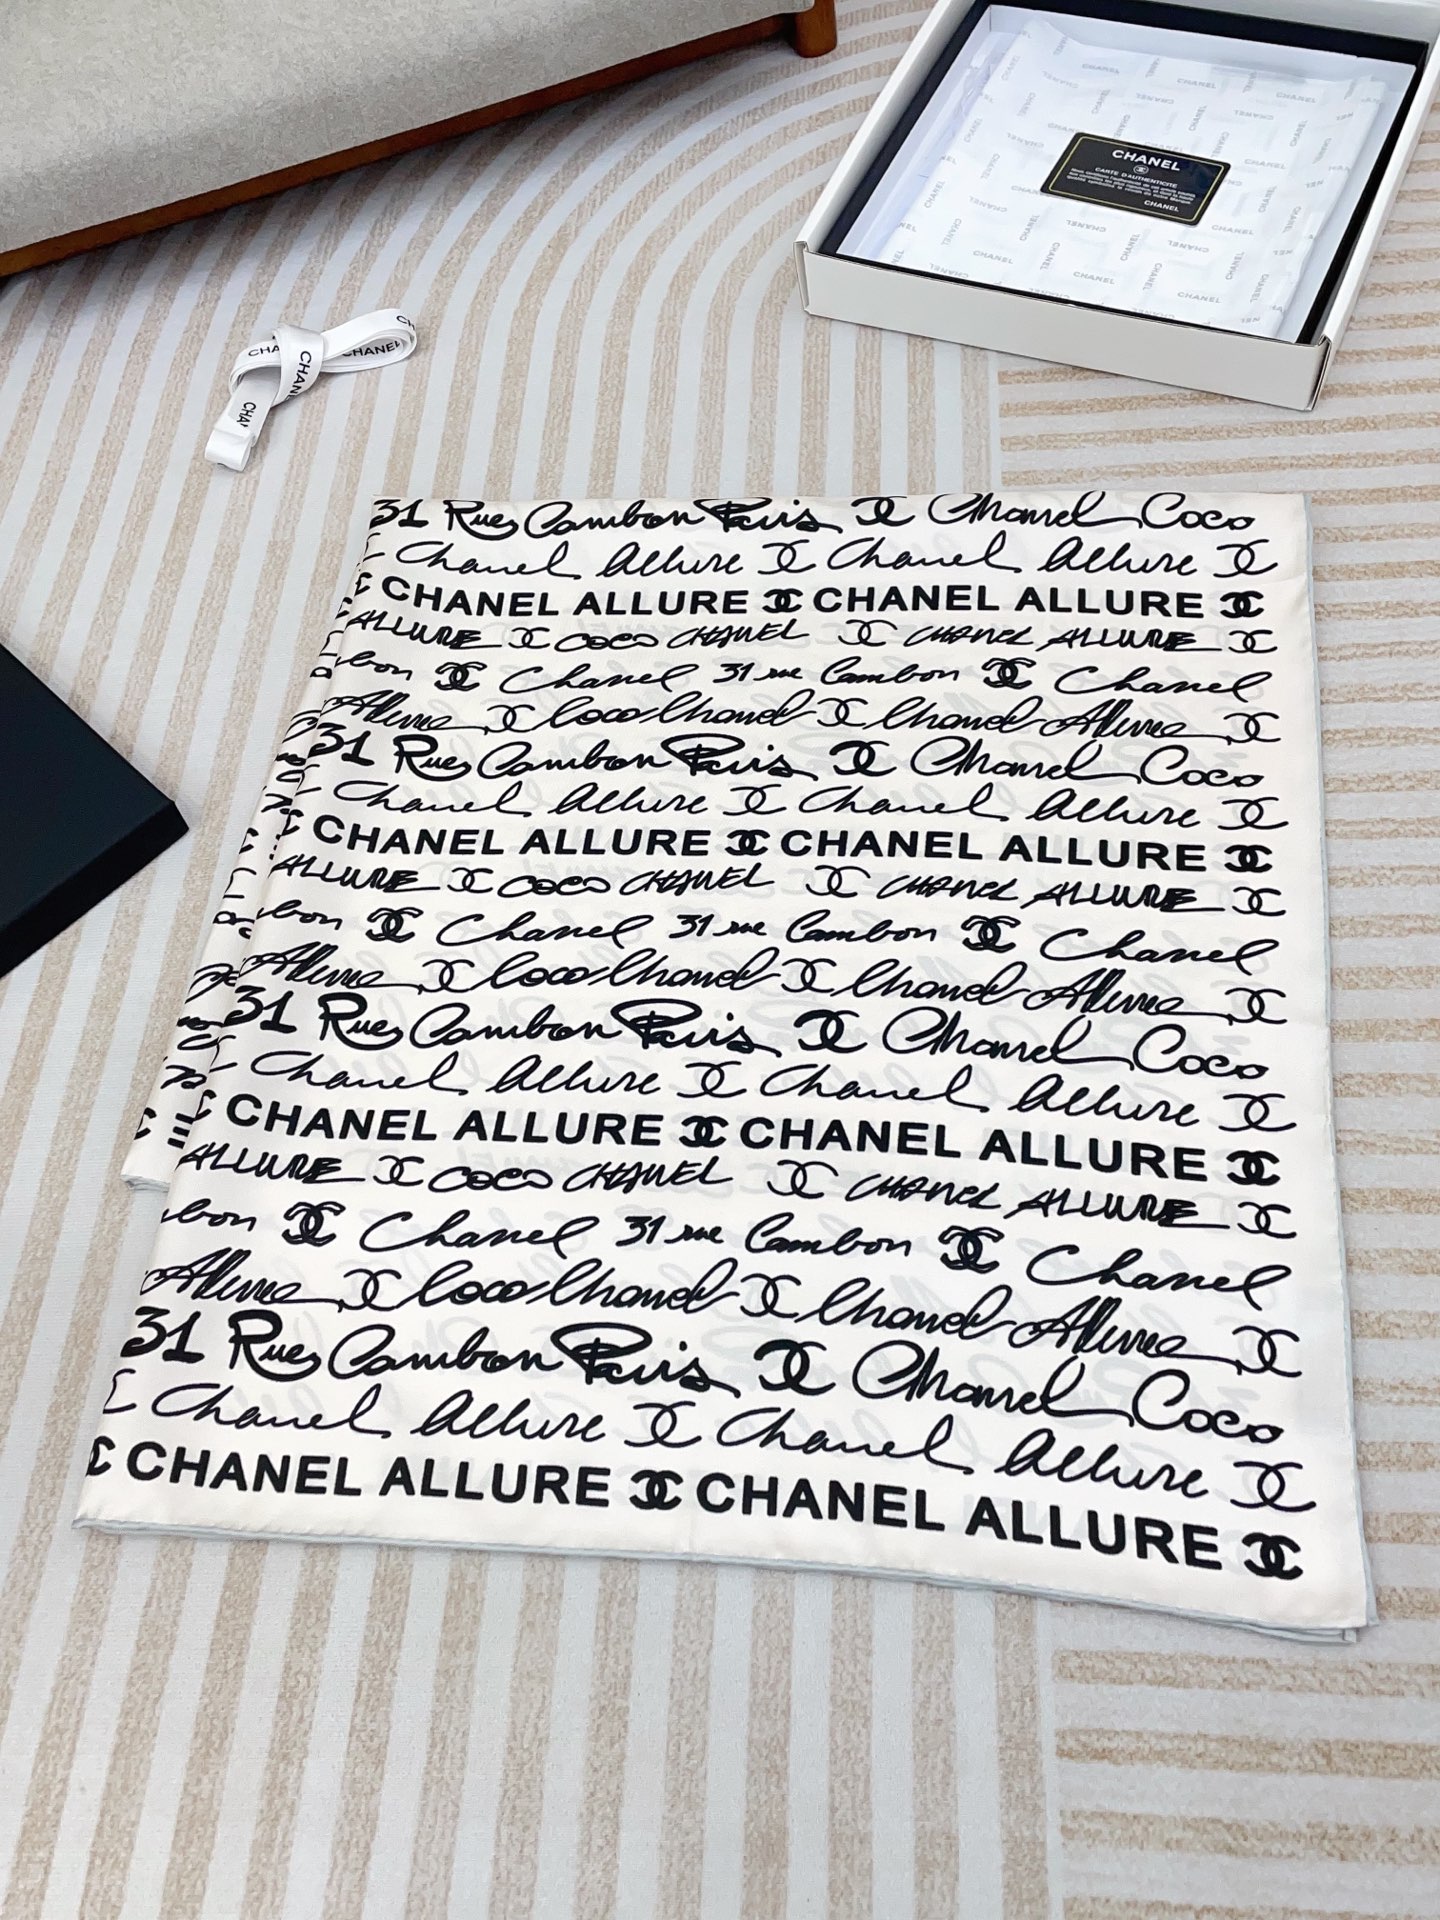 CHANEL
CARTE D'AUTHENTICITÉ
CHANEL
CHANEL CHANEL CHANEL
31 Rue Cambon Paris Chanel Coco
Chanel Allure Chanel Allure
CHANEL ALLURE CHANEL ALLURE
ALLURE COCO CHANEL CHANEL ALLURE
bon Chanel 31 rue Cambon Chanel
Allure Coco Chanel Chanel Allure
31 Rue Cambon Paris Chanel Coco
Chanel Allure Chanel Allure
CHANEL ALLURE CHANEL ALLURE
ALLURE COCO CHANEL CHANEL ALLURE
bon Chanel 31 rue Cambon Chanel
Allure Coco Chanel Chanel Allure
31 Rue Cambon Paris Chanel Coco
Chanel Allure Chanel Allure
CHANEL ALLURE CHANEL ALLURE
ALLURE COCO CHANEL CHANEL ALLURE
bon Chanel 31 rue Cambon Chanel
Allure Coco Chanel Chanel Allure
31 Rue Cambon Paris Chanel Coco
Chanel Allure Chanel Allure
CHANEL ALLURE CHANEL ALLURE